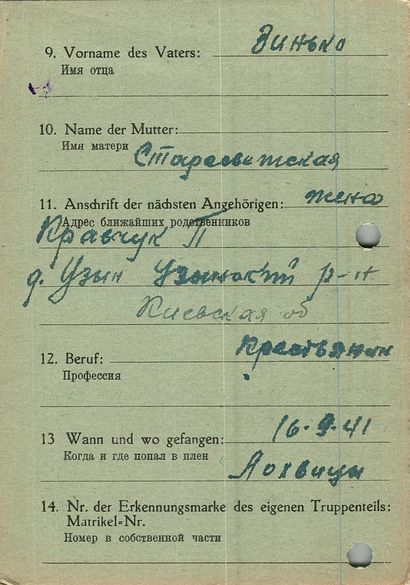 9. Vorname des Vaters: Зинько
Имя отца
10. Name der Mutter:
Имя матери Старевитская
11. Anschrift der nächsten Angehörigen: жена
Адрес ближайших родственников
Кравчук П
д. Узын Узинский р-н
Киевская об
12. Beruf: Крестьянин
Профессия
13 Wann und wo gefangen: 16.9.41
Когда и где попал в плен Лохвицы
14. Nr. der Erkennungsmarke des eigenen Truppenteils:
Matrikel=Nr.
Номер в собственной части